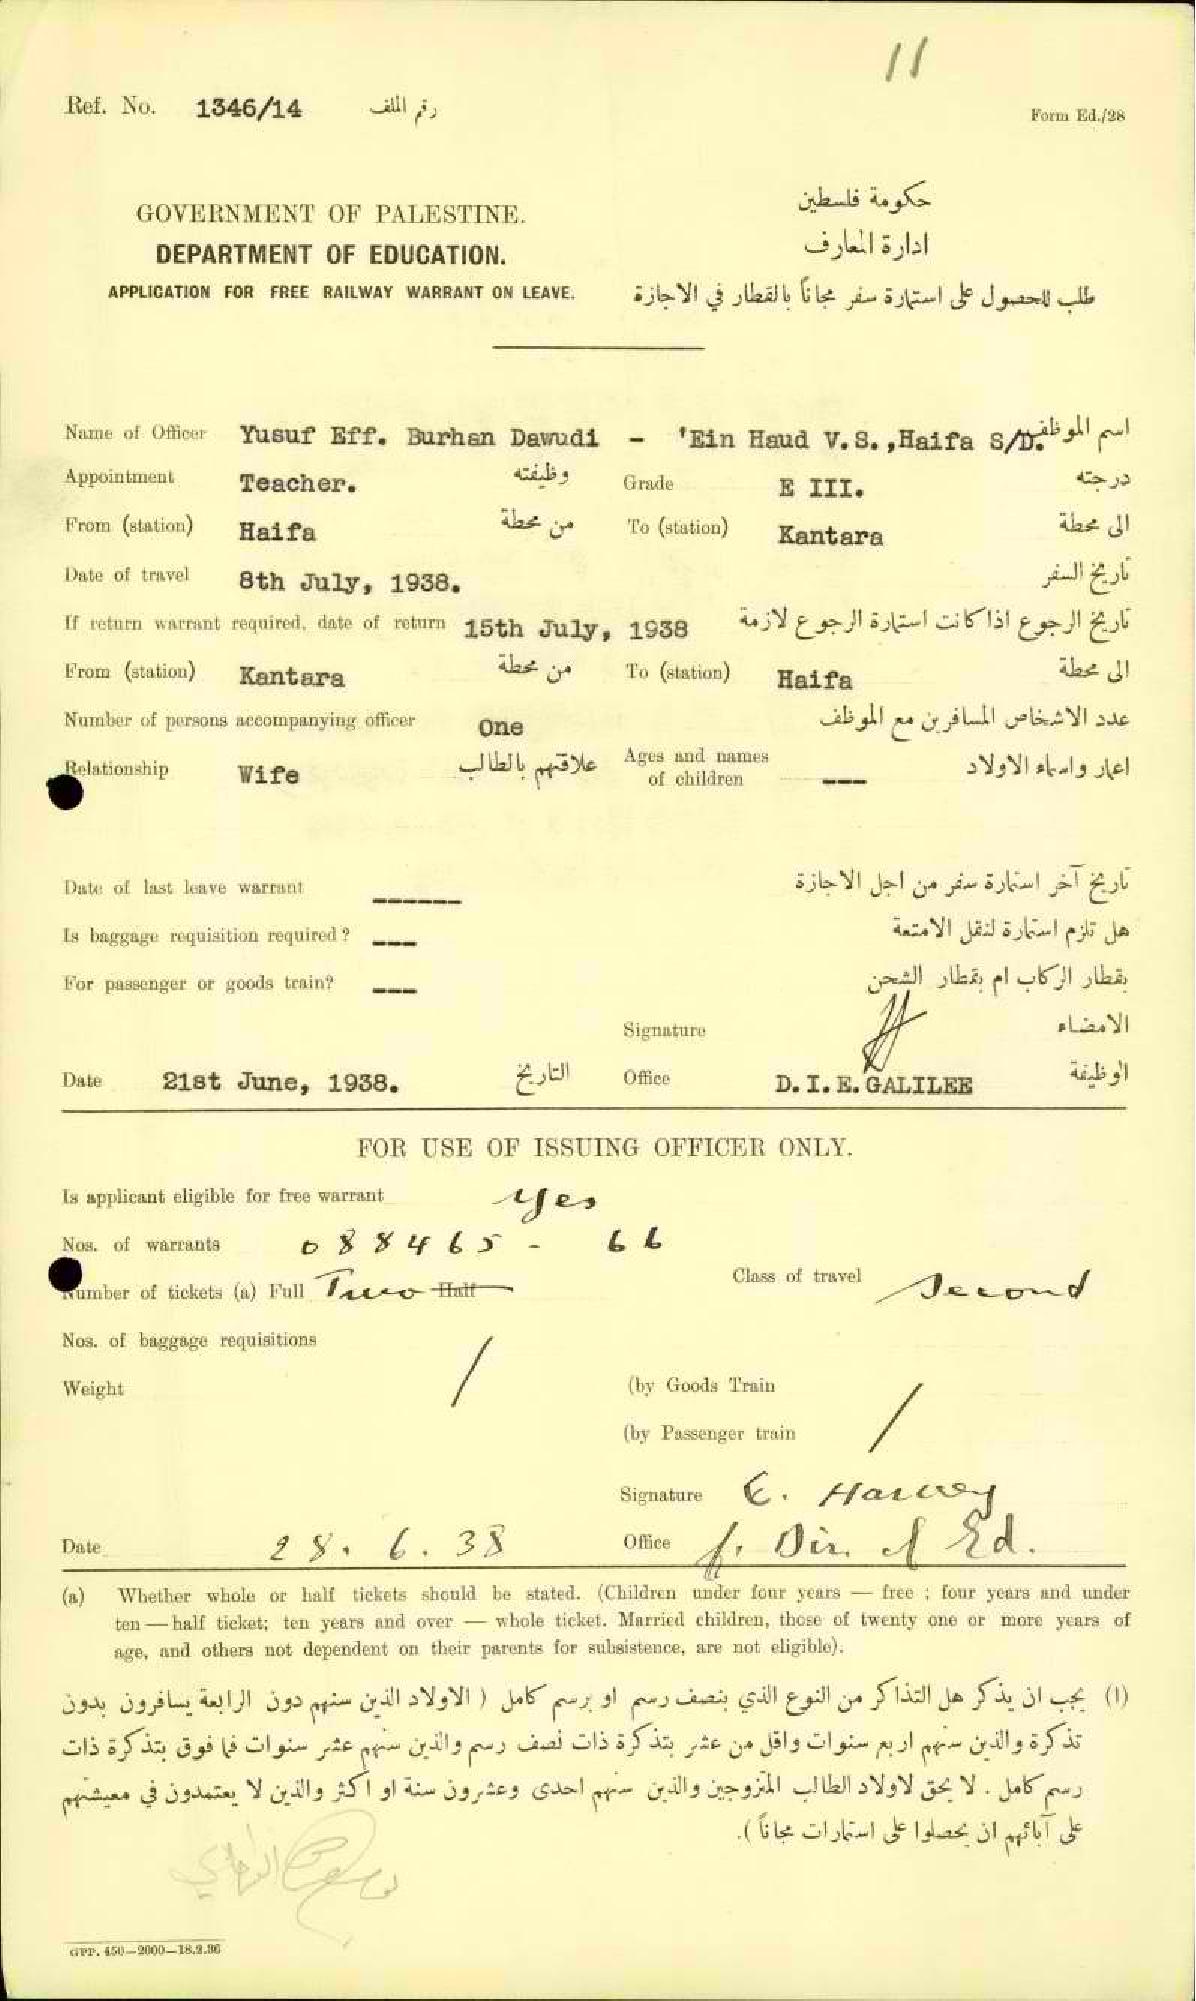 11
Ref. No. 1346/14 رقم الملف
Form Ed./28
GOVERNMENT OF PALESTINE. حكومة فلسطين
DEPARTMENT OF EDUCATION. ادارة المعارف
APPLICATION FOR FREE RAILWAY WARRANT ON LEAVE. طلب للحصول على استمارة سفر مجاناً بالقطار في الاجازة
Name of Officer Yusuf Eff. Burhan Dawudi - 'Ein Haud V.S.,Haifa S/D. اسم الموظف
Appointment Teacher. وظيفته Grade E III. درجته
From (station) Haifa من محطة To (station) Kantara الى محطة
Date of travel 8th July, 1938. تاريخ السفر
If return warrant required, date of return 15th July, 1938 تاريخ الرجوع اذا كانت استمارة الرجوع لازمة
From (station) Kantara من محطة To (station) Haifa الى محطة
Number of persons accompanying officer One عدد الاشخاص المسافرين مع الموظف
Relationship Wife علاقتهم بالطالب Ages and names of children --- اعمار واسماء الاولاد
Date of last leave warrant ------ تاريخ آخر استمارة سفر من اجل الاجازة
Is baggage requisition required? --- هل تلزم استمارة لنقل الامتعة
For passenger or goods train? --- بقطار الركاب ام بقطار الشحن
Signature الامضاء
Date 21st June, 1938. التاريخ Office D.I.E.GALILEE الوظيفة
FOR USE OF ISSUING OFFICER ONLY.
Is applicant eligible for free warrant Yes
Nos. of warrants 088465 - 66
Number of tickets (a) Full Two Half Class of travel Second
Nos. of baggage requisitions
Weight / (by Goods Train
(by Passenger train /
Signature E. Harvey
Date 28.6.38 Office f. Dir. of Ed.
(a) Whether whole or half tickets should be stated. (Children under four years — free ; four years and under
ten — half ticket; ten years and over — whole ticket. Married children, those of twenty one or more years of
age, and others not dependent on their parents for subsistence, are not eligible).
(١) يجب ان يذكر هل التذاكر من النوع الذي بنصف رسم او برسم كامل ( الاولاد الذين سنهم دون الرابعة يسافرون بدون
تذكرة والذين سنهم اربع سنوات واقل من عشر بتذكرة ذات نصف رسم والذين سنهم عشر سنوات فما فوق بتذكرة ذات
رسم كامل . لا يحق لاولاد الطالب المتزوجين والذين سنهم احدى وعشرون سنة او اكثر والذين لا يعتمدون في معيشتهم
على آبائهم ان يحصلوا على استمارات مجاناً ).
GPP. 450—2000—18.2.36